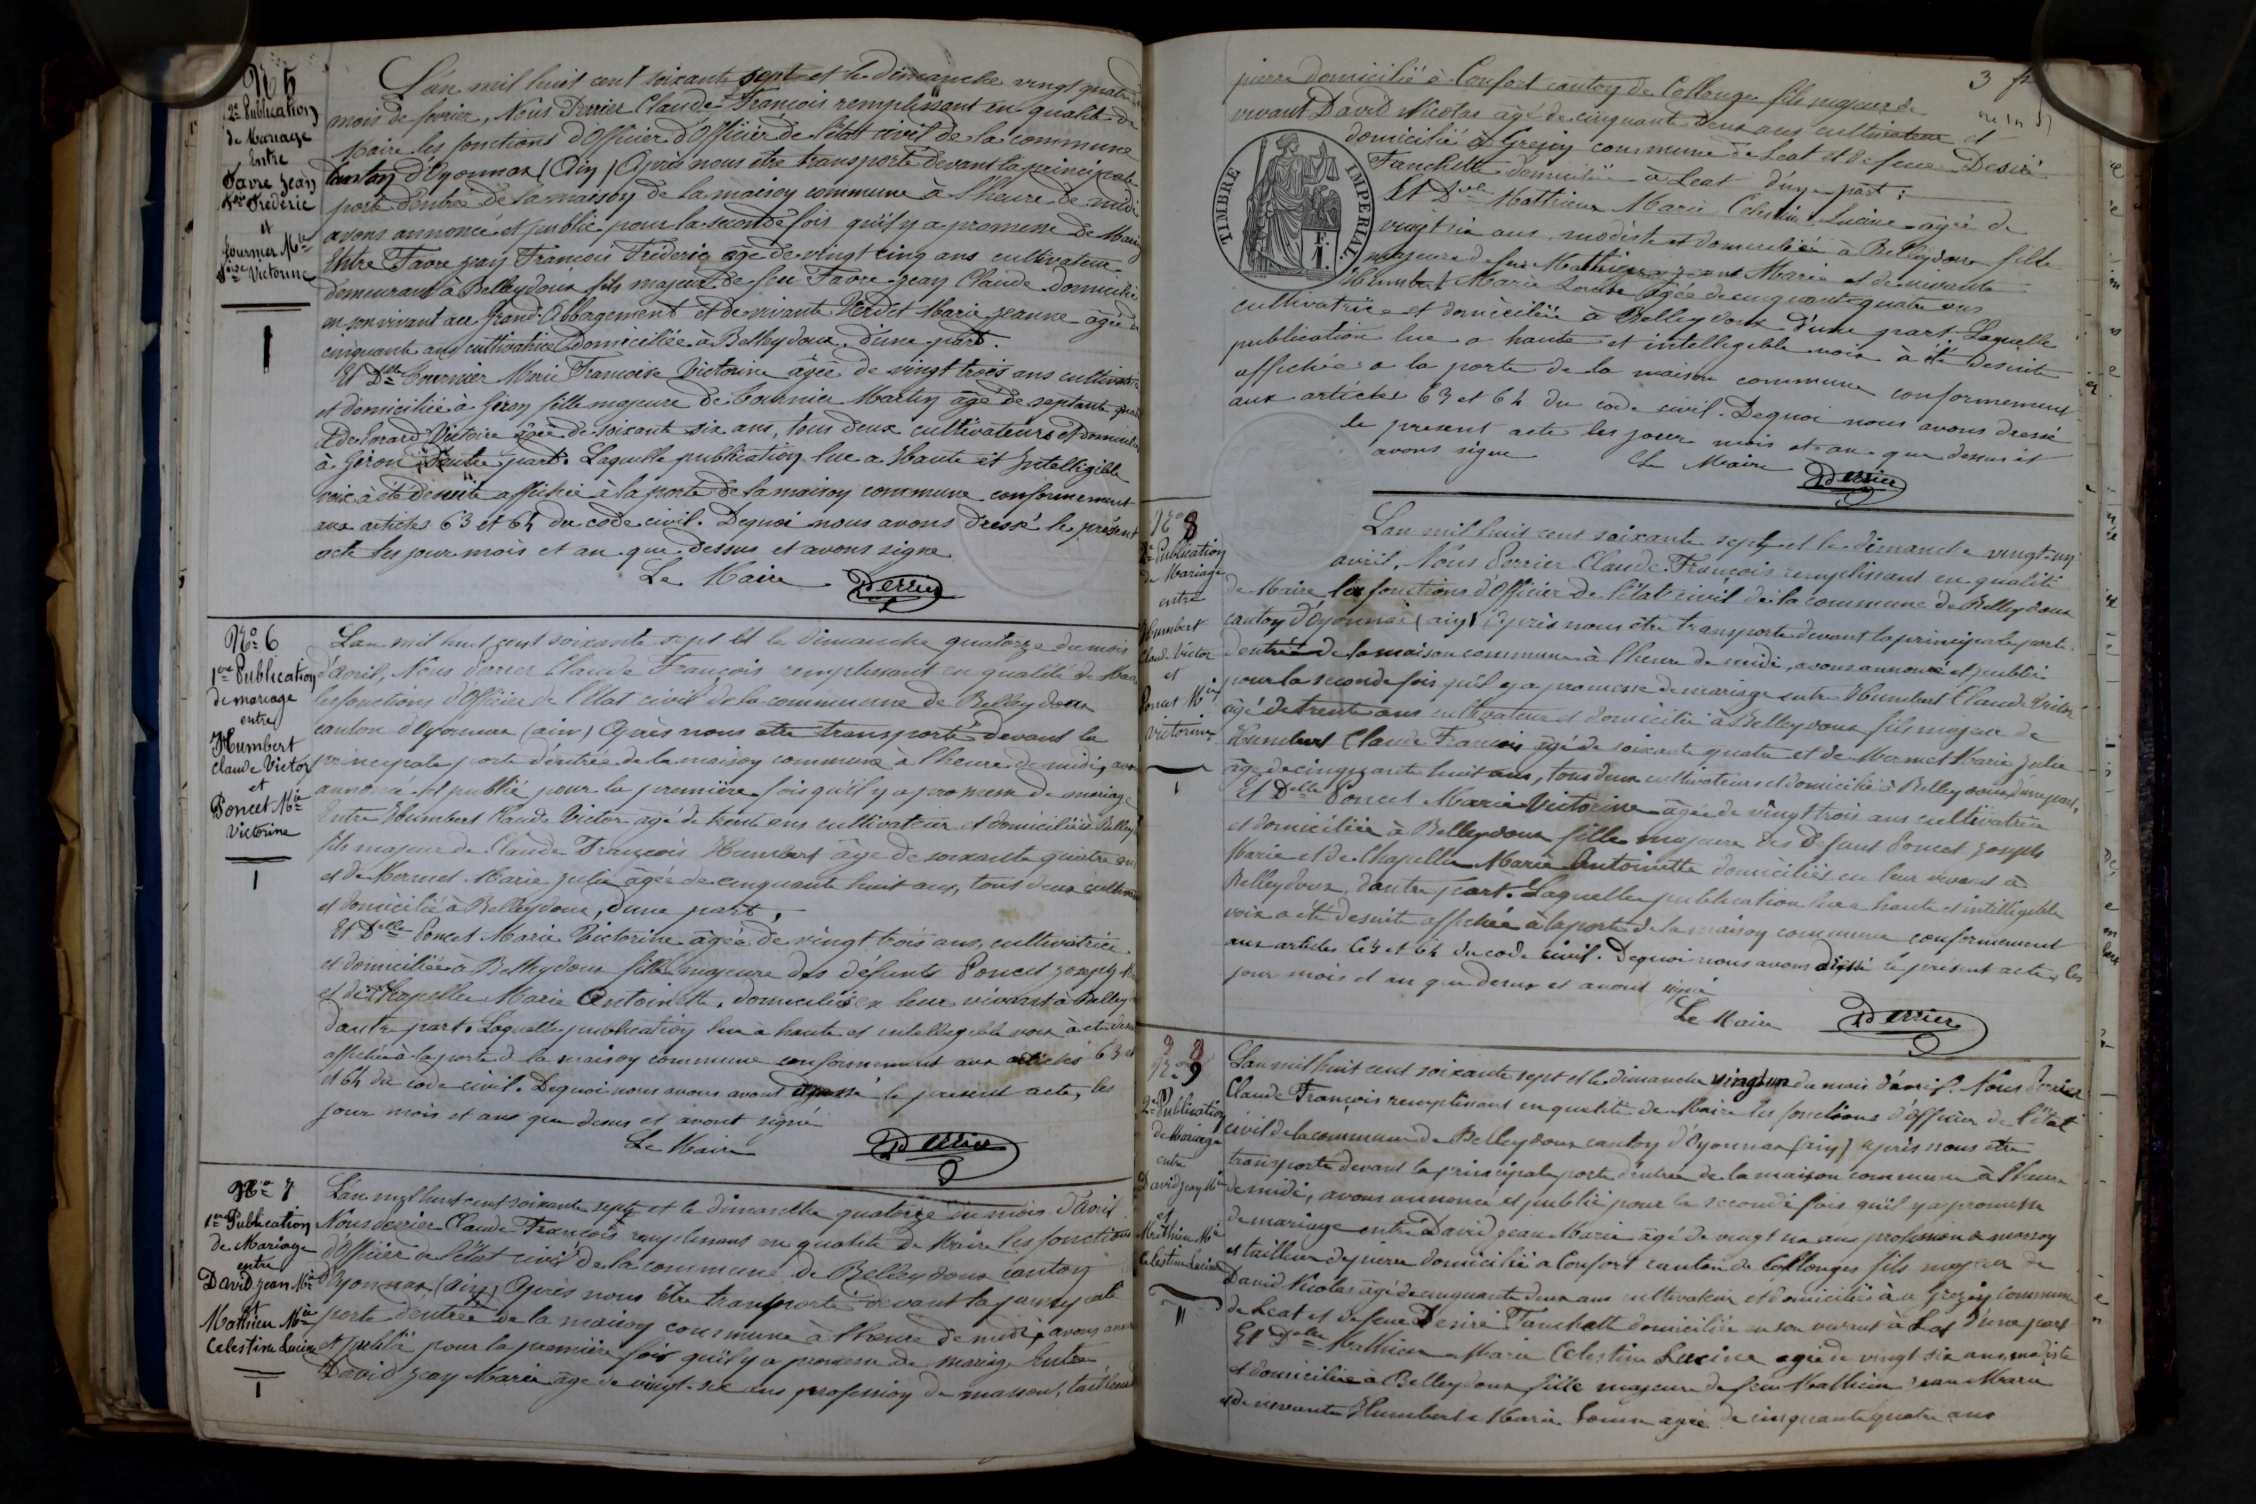 N° 5
2e Publication
de Mariage
Entre
Favre Jean
Fois Frédéric
et
Fournier Mie
Foise Victorine
L'an mil huit cent soixante sept et le dimanche vingt quatre
mois de fevrier, Nous Perrier Claude François remplissant en qualité de
Maire les fonctions d'Officier d'Officier de l'état civil de la commune
canton d'Oyonnax (Ain) Après nous être transporté devant la principale
porte d'entrée de la maison de la maison commune à l'heure de midi
avons annoncé et publié pour la seconde fois qu'il y a promesse de Mariage
Entre Favre Jean François Fréderic âgé de vingt cinq ans cultivateur
demeurant à Belleydoux fils majeur de feu Favre Jean Claude domicilié
en son vivant au Grand Abbergement et de vivante Verdet Marie Jeanne âgée de
cinquante ans cultivatrice domiciliée à Belleydoux, d'une part.
Et Dlle Fournier Marie Francoise Victoire âgée de vingt trois ans cultivatrice
et domiciliée à Giron fille majeure de Fournier Martin âgé de septante
et de Victoire âgée de soixante six ans, tous deux cultivateurs et domiciliés
à Giron d'autre part. Laquelle publication lue a Haute et Intelligible
voix à été desuite affichée à la porte de la maison commune conformement
aux articles 63 et 64 du code civil. Dequoi nous avons dressé le présent
acte les jour mois et an que dessus et avons signé
Le Maire Perrier
N° 6
1re Publication
de mariage
entre
Humbert
Claude Victor
et
Poncet Mie
Victorine
L'an mil huit cent soixante sept et le dimanche quatorze du mois
d'avril, Nous Perrier Claude François remplissant en qualité de Maire
les fonctions d'Officier de l'Etat civil de la commune de Belleydoux
canton d'Oyonnax (ain) Après nous etre transporté devant la
principale porte d'entrée de la maison commune à l'heure de midi, avons
annoncé et publié pour la première fois qu'il y a promesse de mariage
Entre Humbert Claude Victor agé de trente ans cultivateur et domicilié à Belley
fils majeur de Claude François Humbert âgé de soixante quatre ans
et de Mermet Marie Julie âgée de cinquante huit ans, tous deux
et domicilié à Belleydoux, d'une part,
Et Delle Poncet Marie Victorine âgée de vingt trois ans, cultivatrice
et domiciliée à Belleydoux fille majeure des défunts Poncet Joseph
et de Chapelle Marie Antoinette, domiciliés en leur vivant à Belley
d'autre part. Laquelle publication lue à haute et intelligible voix à été
affichée à la porte de la maison commune conformement aux articles 63 et
et 64 du code civil. Dequoi nous avons avons dressé le présent acte, les
jour mois et ans que desus et avont signé
Le Maire Perrier
N° 7
1re Publication
de Mariage
entre
David Jean Mie
et
Mathieu Mie
Celestine Lucine
L'an mil huit cent soixante sept et le dimanche quatorze du mois d'avril
Nous Perrier Claude François remplissant en qualité de Maire les fonctions
d'Officier de l'état civil de la commune de Belleydoux canton
d'Oyonnax (ain) Après nous être transporté devant la principale
porte d'entrée de la maison commune à l'heure de midi, avons
et publié pour la première fois qu'il y a promesse de mariage Entre
David Jean Marie âgé de vingt-six ans profession de masson,
3
pierre domicilié à Confort canton de Collonges fils majeur de
vivant David Nicolas âgé de cinquante deux ans cultivateur et
domicilié à Grezin commune de Leat et de feue Desiré
Fanchette domiciliée à Leat d'une part:
Et Dlle Mathieu Marie Celestine Lucine agée de
vingt six ans modiste et domiciliée à Belleydoux fille
majeure de feu Mathieu Jean Marie et de vivante
Humbert Marie Louise âgée de cinquante quatre ans
cultivatrice et domiciliée à Belleydoux d'une part. Laquelle
publication lue a haute et intelligible voix à été desuite
affichée a la porte de la maison commune conformement
aux articles 63 et 64 du code civil. Dequoi nous avons dressé
le present acte les jour mois et an que dessus et
avons signé
Le Maire Perrier
TIMBRE IMPERIAL
F.
1.
N° 8
2e Publication
de Mariage
entre
Humbert
Claude Victor
et
Poncet Mie
Victorine
L'an mil huit cent soixante sept et le dimanche vingt-un
avril, Nous Perrier Claude François remplissant en qualité
de Maire les fonctions d'Officier de l'état civil de la commune de Belleydoux
canton d'Oyonnax (ain) Après nous être transporté devant la principale porte
d'entrée de la maison commune à l'heure de midi, avons annoncé et publié
pour la seconde fois qu'il y a promesse de mariage entre Humbert Claude Victor
âgé de trente ans cultivateur et domicilié à Belleydoux fils majeur de
Humbert Claude François âgé de soixante quatre et de Mermet Marie Julie
âgée de cinquante huit ans, tous deux cultivateurs et domicilié à Belleydoux d'une part,
Et Delle Poncet Marie Victorine âgée de vingt trois ans cultivatrice
et domiciliée à Belleydoux fille majeure des Defunt Poncet Joseph
Marie et de Chapelle Marie Antoinette domiciliés en leur vivant à
Belleydoux, d'autre part. Laquelle publication lue a haute et intelligible
voix a été desuite affichée à la porte de la maison commune conformement
aux articles 63 et 64 du code civil. Dequoi nous avons dressé le présent acte, les
jour mois et an que desus et avons signé
Le Maire Perrier
N° 9
2e Publication
de Mariage
entre
David Jean Mie
et
Mathieu Mie
Celestine Lucine
L'an mil huit cent soixante sept et le dimanche vingt un du mois d'avril. Nous Perrier
Claude François remplissant en qualité de Maire les fonctions d'Officier de l'état
civil de la commune de Belleydoux canton d'Oyonnax (ain) après nous etre
transporté devant la principale porte d'entrée de la maison commune à l'heure
de midi, avons annoncé et publié pour la seconde fois qu'il y a promesse
de mariage entre David Jean Marie âgé de vingt six ans profession de masson
et tailleur de pierre domicilié a Confort canton de Collonges fils majeur de
David Nicolas âgé de cinquante deux ans cultivateur et domicilié à a Grezin commune
de Leat et de feue Desiré Fanchette domiciliée en son vivant à Leat d'une part
Et Delle Mathieu Marie Celestine Lucine agée de vingt six ans modiste
et domiciliée à Belleydoux fille majeure de feu Mathieu Jean Marie
et de vivante Humbert Marie Louise agée de cinquante quatre ans